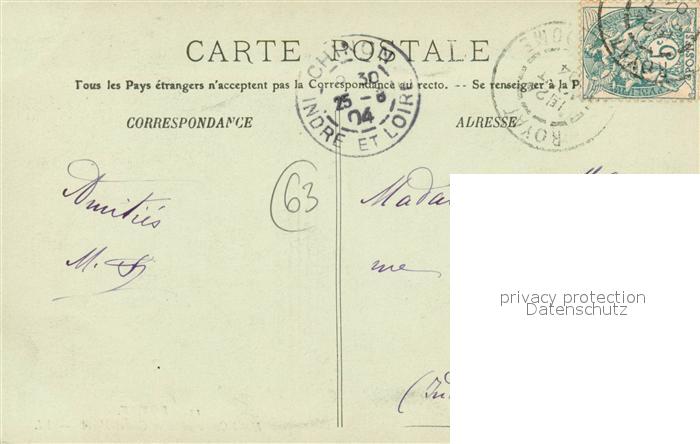 CARTE POSTALE
Tous les Pays étrangers n'acceptent pas la Correspondance au recto. -- Se renseigner à la P
CORRESPONDANCE
ADRESSE
CHINON
8 30
25 - 8
04
INDRE ET LOIRE
ROYAT
DOME
5
63
Amitiés
M.
Mada
me
privacy protection
Datenschutz